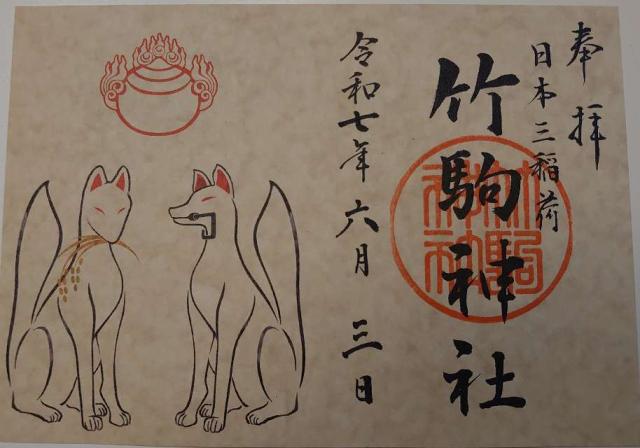 奉拝
日本三稲荷
竹駒神社
令和七年六月三日